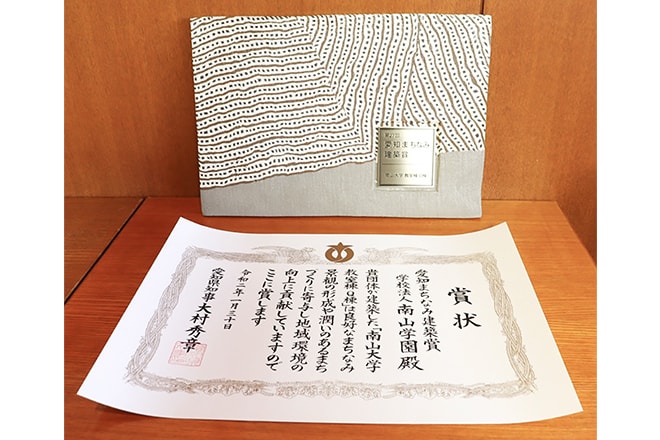 第27回
愛知まちなみ
建築賞
賞状
愛知まちなみ建築賞
学校法人南山学園殿
貴団体が建築した「南山大学
教室棟Q棟は良好なまちなみ
景観の形成や潤いのあるまち
づくりに寄与し地域環境の
向上に貢献していますので
ここに賞します
令和二年一月三十日
愛知県知事大村秀章